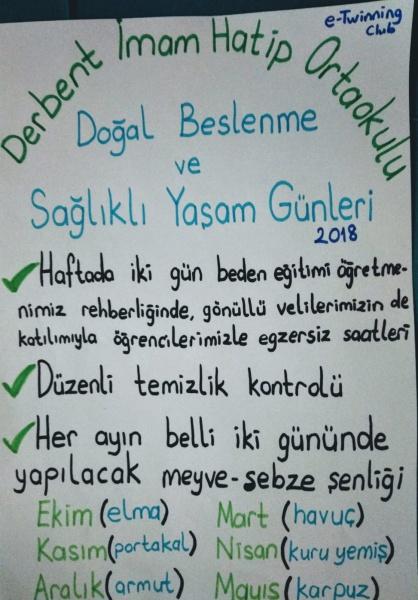 e-Twinning
Club
Derbent İmam Hatip Ortaokulu
Doğal Beslenme
ve
Sağlıklı Yaşam Günleri
2018
✓Haftada iki gün beden eğitimi öğretme-
nimiz rehberliğinde, gönüllü velilerimizin de
katılımıyla öğrencilerimizle egzersiz saatleri
✓Düzenli temizlik kontrolü
✓Her ayın belli iki gününde
yapılacak meyve-sebze şenliği
Ekim (elma) Mart (havuç)
Kasım (portakal) Nisan (kuru yemiş)
Aralık (armut) Mayıs (karpuz)